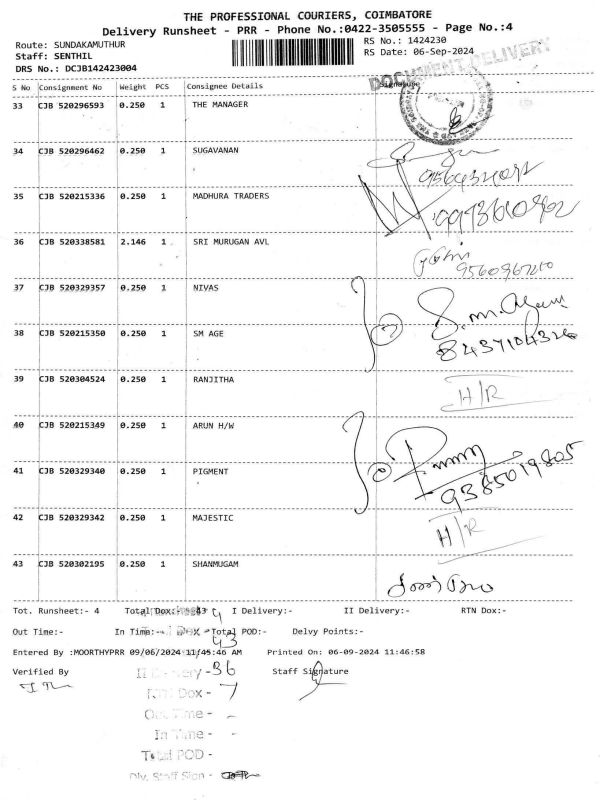 THE PROFESSIONAL COURIERS, COIMBATORE
Delivery Runsheet - PRR - Phone No.:0422-3505555 - Page No.:4
Route: SUNDAKAMUTHUR RS No.: 1424230
Staff: SENTHIL RS Date: 06-Sep-2024
DRS No.: DCJB142423004
DOCUMENT DELIVERY
S No Consignment No Weight PCS Consignee Details Signature
33 CJB 520296593 0.250 1 THE MANAGER
34 CJB 520296462 0.250 1 SUGAVANAN
35 CJB 520215336 0.250 1 MADHURA TRADERS
36 CJB 520338581 2.146 1 SRI MURUGAN AVL
37 CJB 520329357 0.250 1 NIVAS
38 CJB 520215350 0.250 1 SM AGE
8437104326
39 CJB 520304524 0.250 1 RANJITHA H/R
40 CJB 520215349 0.250 1 ARUN H/W
41 CJB 520329340 0.250 1 PIGMENT 9385019805
42 CJB 520329342 0.250 1 MAJESTIC H/R
43 CJB 520302195 0.250 1 SHANMUGAM
Tot. Runsheet:- 4 Total Dox:- 43 I Delivery:- II Delivery:- RTN Dox:-
Out Time:- In Time:- Total POD:- Delvy Points:-
43
Entered By :MOORTHYPRR 09/06/2024 11:45:46 AM Printed On: 06-09-2024 11:46:58
Verified By Staff Signature
II Delivery - 36
RTN Dox - 7
Out Time - -
In Time - -
Total POD -
Dlv. Staff Sign -